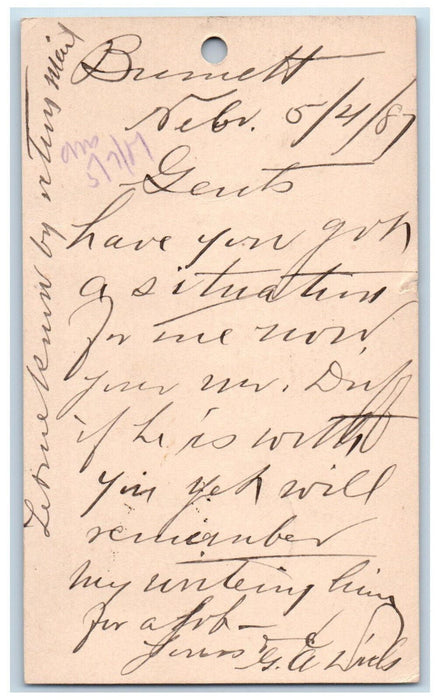 Burnett
Nebr. 5/4/87
Gents
have you got
a situation
for me now
your mr. Duff
if he is with
you yet will
remember
my writeing him
for a Job -
Yours &c
G. A.
Let me know by return mail